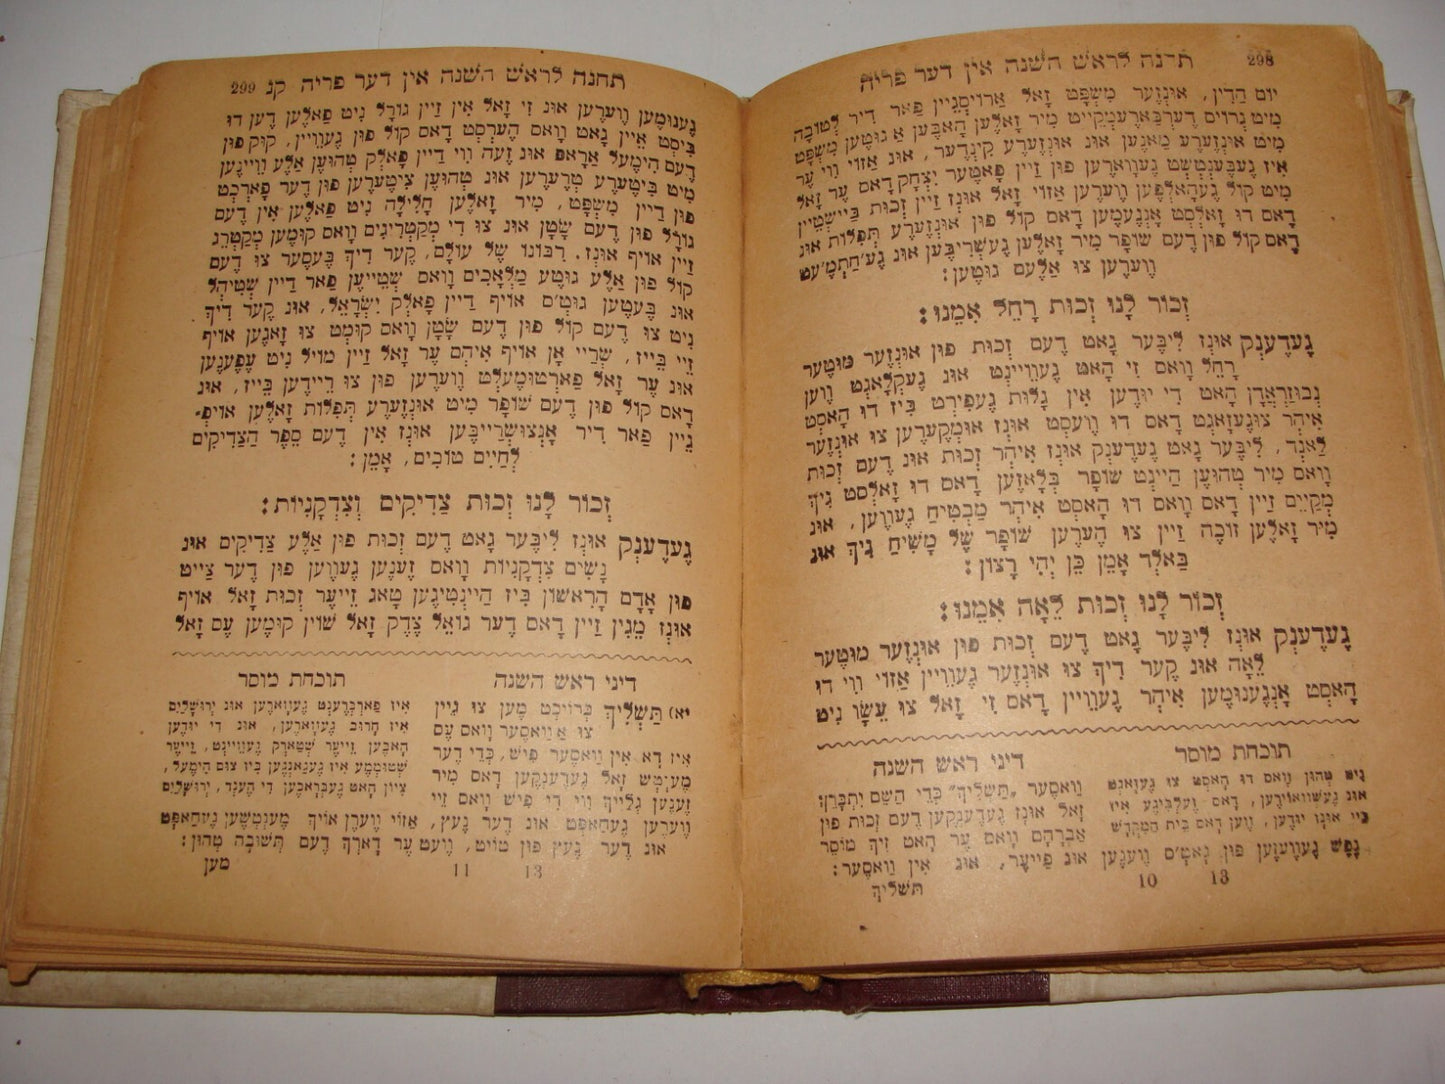 298 תחנה לראש השנה אין דער פריה
יוֹם הַדִין, אוּנְזֶער מִשְׁפָּט זָאל אַרוֹיסְגֵיין פַאר דִיר לְטוֹבָה
מִיט גְרוֹיס דֶערְבַּארֶעמְקֵייט מִיר זָאלֶען הָאבֶּען אַ גוּטֶען מִשְׁפָּט
מִיט אוּנְזֶערֶע מַאנֶען אוּנ אוּנְזֶערֶע קִינְדֶער, אוּנ אַזוֹי וִוי עֶר
אִיז געֶבֶּענְטְשְׁט געֶוָוארֶען פוּן זַיין פָאטֶער יִצְחָק דָאס עֶר זָאל
מִיט קוֹל געֶהָאלְפֶען וֶוערֶען אַזוֹי זָאל אוּנְז זַיין זְכוּת בַּיישְׁטֵיין
דָאס דוּ זָאלְסט אָנְנֶעמֶען דָאס קוֹל פוּן אוּנְזֶערֶע תְּפִלוֹת אוּנ
דָאס קוֹל פוּן דֶעם שׁוֹפָר מִיר זָאלֶען געֶשְׁרִיבֶּען אוּנ געֶ׳חַתְמֶ׳עט
וֶוערֶען צוּ אַלֶעם גוּטֶען:
זְכוֹר לָנוּ זְכוּת רָחֵל אִמֵנוּ:
געֶדֶענְק אוּנְז לִיבֶּער גָאט דֶעם זְכוּת פוּן אוּנְזֶער מוּטֶער
רָחֵל וָואס זִי הָאט געֶוֵויינְט אוּנ געֶקְלָאגְט וֶוען
נְבוּזַרְאֲדָן הָאט דִי יוּדֶען אִין גָלוּת געֶפִירְט בִּיז דוּ הָאסְט
אִיהְר צוּגעֶזָאגְט דָאס דוּ וֶועסְט אוּנְז אוּמְקֶערֶען צוּ אוּנְזֶער
לַאנְד, לִיבֶּער גָאט געֶדֶענְק אוּנְז אִיהְר זְכוּת אוּנ דֶעם זְכוּת
וָואס מִיר טְהוּען הַיינְט שׁוֹפָר בְּלָאזֶען דָאס דוּ זָאלְסט גִיךְ
מְקַיֵים זַיין דָאס וָואס דוּ הָאסְט אִיהְר מַבְטִיחַ געֶוֶוען, אוּנ
מִיר זָאלֶען זוֹכֶה זַיין צוּ הֶערֶען שׁוֹפָר שֶׁל מָשִׁיחַ גִיךְ אוּנ
בַּאלְד אָמֵן כֵּן יְהִי רָצוֹן:
זְכוֹר לָנוּ זְכוּת לֵאָה אִמֵנוּ:
געֶדֶענְק אוּנְז לִיבֶּער גָאט דֶעם זְכוּת פוּן אוּנְזֶער מוּטֶער
לֵאָה אוּנ קֶער דִיךְ צוּ אוּנְזֶער געֶוֵויין אַזוֹי וִוי דוּ
הָאסְט אָנְגעֶנוּמֶען אִיהְר געֶוֵויין דָאס זִי זָאל צוּ עֵשָׂו נִיט
דיני ראש השנה
וואַסֶער „תַּשְׁלִיךְ" כְּדֵי הַשֵׁם יִתְבָּרֵךְ
זָאל אוּנְז געֶדֶענְקֶען דֶעם זְכוּת פוּן
אַבְרָהָם וָואס עֶר הָאט זִיךְ מוֹסֵר
נֶפֶשׁ געֶוֶועזֶען פוּן גָאט׳ס וֶועגֶען אוּנ פַייעֶר, אוּנ אִין וואַסֶער:
תוכחת מוסר
נִיט טְהוּן וָואס דוּ הָאסְט צוּ געֶזָאגְט
אוּנ געֶשְׁווֹאוֹירֶען, דָאס זֶעלְבִּיגֶע אִיז
בַּיי אוּנְז יוּדֶען, וֶוען דָאס בֵּית הַמִקְדָשׁ
תשליך
10 13
299 תחנה לראש השנה אין דער פריה קנ
געֶנוּמֶען וֶוערֶען אוּנ זִי זָאל אִין זַיין גוֹרָל נִיט פַאלֶען דֶען דוּ
בִּיסְט אֵיין גָאט וָואס הֶערְסְט דָאס קוֹל פוּן געֶוֵויין, קוּק פוּן
דֶעם הִימֶעל אַרָאפּ אוּנ זֶעה וִוי דַיין פָאלְק טְהוּען אַלֶע וֵויינֶען
מִיט בִּיטֶערֶע טְרֶערֶען אוּנ טְהוּען צִיטֶערֶען פוּן דֶער פָארְכְט
פוּן דַיין מִשְׁפָּט, מִיר זָאלֶען חָלִילָה נִיט פַאלֶען אִין דֶעם
גוֹרָל פוּן דֶעם שָׂטָן אוּנ צוּ דִי מְקַטְרִיגִים וָואס קוּמֶען מְקַטְרֵג
זַיין אוֹיף אוּנְז. רִבּוֹנוֹ שֶׁל עוֹלָם, קֶער דִיךְ בֶּעסֶער צוּ דֶעם
קוֹל פוּן אַלֶע גוּטֶע מַלְאָכִים וָואס שְׁטֵייעֶן פַאר דַיין שְׁטִיהְל
אוּנ בֶּעטֶען גוּט׳ס אוֹיף דַיין פָאלְק יִשְׂרָאֵל, אוּנ קֶער דִיךְ
נִיט צוּ דֶעם קוֹל פוּן דֶעם שָׂטָן וָואס קוּמְט צוּ זָאגֶען אוֹיף
זֵיי בֵּייז, שְׁרַיי אָן אוֹיף אִיהְם עֶר זָאל זַיין מוֹיל נִיט עֶפֶענֶען
אוּנ עֶר זָאל פַארְטוּמֶעלְט וֶוערֶען פוּן צוּ רֵיידֶען בֵּייז, אוּנ
דָאס קוֹל פוּן דֶעם שׁוֹפָר מִיט אוּנְזֶערֶע תְּפִלוֹת זָאלֶען אוֹיפְ-
גֵיין פַאר דִיר אָנְצוּשְׁרַייבֶּען אוּנְז אִין דֶעם סֵפֶר הַצַדִיקִים
לְחַיִים טוֹבִים, אָמֵן:
זְכוֹר לָנוּ זְכוּת צַדִיקִים וְצִדְקָנִיוֹת:
געֶדֶענְק אוּנְז לִיבֶּער גָאט דֶעם זְכוּת פוּן אַלֶע צַדִיקִים אוּנ
נָשִׁים צִדְקָנִיוֹת וָואס זֶענֶען געֶוֶוען פוּן דֶער צַייט
פוּן אָדָם הָרִאשׁוֹן בִּיז הַיינְטִיגֶען טָאג זֵייעֶר זְכוּת זָאל אוֹיף
אוּנְז מֵגִין זַיין דָאס דֶער גוֹאֵל צֶדֶק זָאל שׁוֹין קוּמֶען עֶם זָאל
דיני ראש השנה
יא) תַּשְׁלִיךְ בְּרוֹיכְט מֶען צוּ גֵיין
צוּ אַ וואַסֶער וָואס עֶס
אִיז דָא אִין וואַסֶער פִישׁ, כְּדֵי דֶער
מֶענְטְשׁ זָאל געֶדֶענְקֶען דָאס מִיר
זֶענֶען גְלַייךְ וִוי דִי פִישׁ וָואס זֵיי
וֶוערֶען געֶחַאפְּט אוּנ דֶער נֶעץ, אַזוֹי וֶוערְן אוֹיךְ מֶענְטְשֶׁען געֶחַאפְּט
אוּנ דֶער נֶעץ פוּן טוֹיט, וֶועט עֶר דָארְךְ דֶעם תְּשׁוּבָה טְהוּן:
תוכחת מוסר
אִיז פַארְבְּרֶענְט געֶוָוארֶען אוּנ יְרוּשָׁלַיִם
אִיז חָרוּב געֶוָוארֶען, אוּנ דִי יוּדֶען
הָאבֶּען זֵייעֶר שְׁטַארְק געֶוֵויינְט, זֵייעֶר
שְׁטִימֶע אִיז געֶגאַנְגֶען בִּיז צוּם הִימֶעל,
צִיוֹן הָאט געֶבְּרָאכֶען דִי הֶענְד, יְרוּשָׁלַיִם
מען
11 13